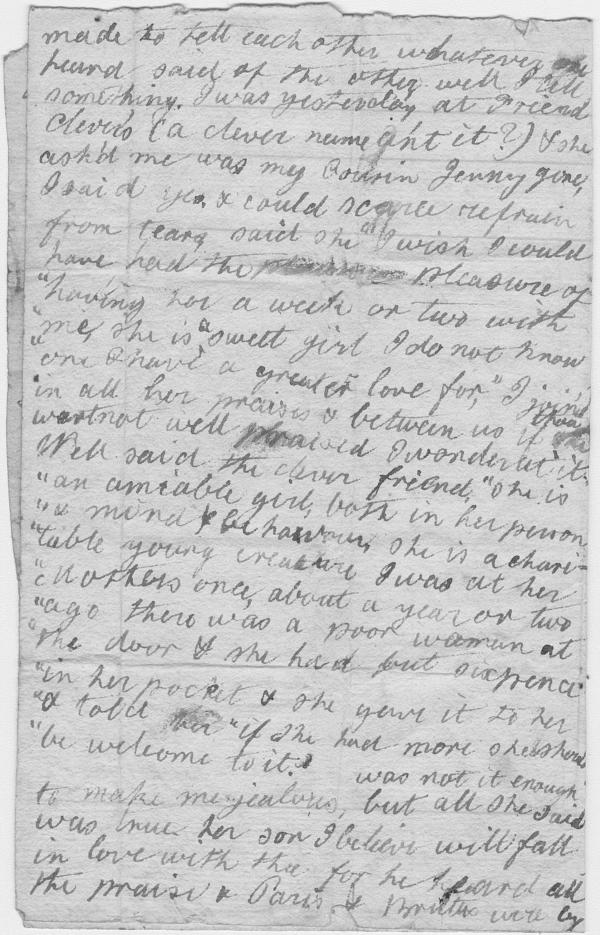 made to tell each other whatever one
heard said of the other well I tell
something. I was yesterday at Friend
Clever's (a clever name ain't it?) & she
ask'd me was my Cousin Jenny gone,
I said yes, & could scarce refrain
from tears, said she "I wish I could
have had the pleasure of
"having her a week or two with
"me, she is a sweet girl I do not know
"one I have a greater love for," I join'd
in all her praises & between us if thou
wert not well praised I wonder at it.
Well said the clever friend, "she is
"an amiable girl, both in her person
"& mind & behaviour, she is a chari-
"table young creature I was at her
"Mothers once, about a year or two
"ago there was a poor woman at
"the door & she had but sixpence
"in her pocket & she gave it to her
"& told her "if she had more she shou'd
"be welcome to it." was not it enough
to make me jealous, but all she said
was true. her son I believe will fall
in love with thee for he heard all
the praise & Paris & Brutus were by